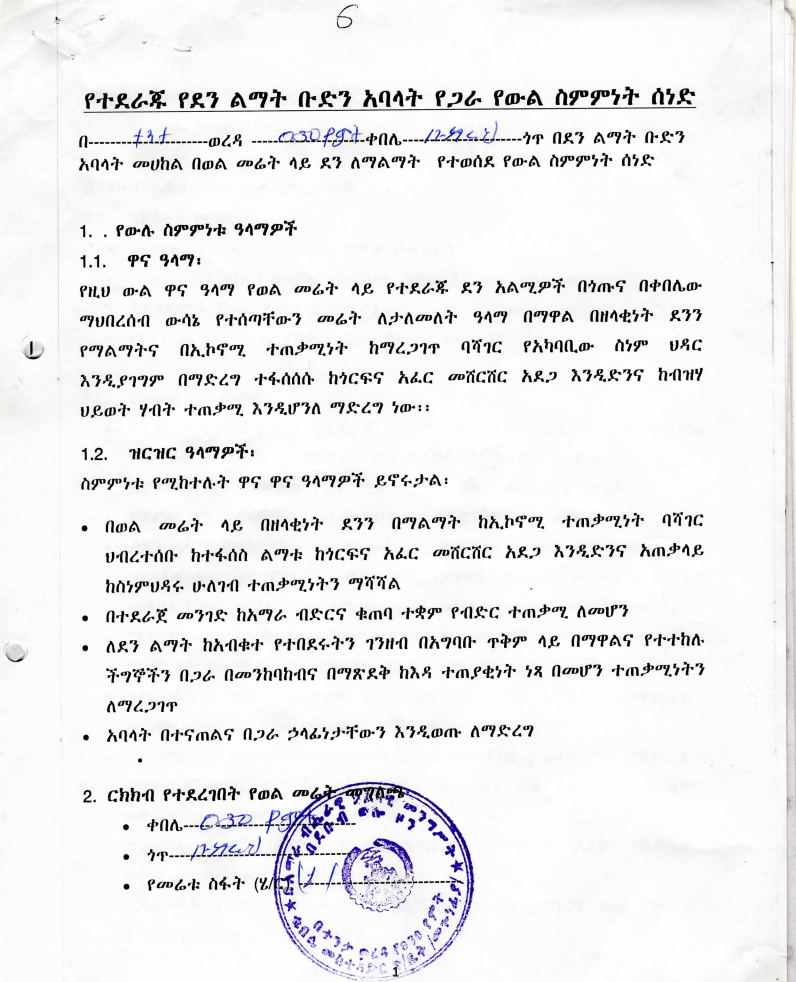 6
የተደራጁ የደን ልማት ቡድን አባላት የጋራ የውል ስምምነት ሰነድ
በ--------ተንታ--------ወረዳ ---------030-------ቀበሌ----------------ጎጥ በደን ልማት ቡድን
አባላት መሀከል በወል መሬት ላይ ደን ለማልማት የተወሰደ የውል ስምምነት ሰነድ
1. . የውሉ ስምምነቱ ዓላማዎች
1.1. ዋና ዓላማ፡
የዚህ ውል ዋና ዓላማ የወል መሬት ላይ የተደራጁ ደን አልሚዎች በጎጡና በቀበሌው
ማህበረሰብ ውሳኔ የተሰጣቸውን መሬት ለታለመለት ዓላማ በማዋል በዘላቂነት ደንን
የማልማትና በኢኮኖሚ ተጠቃሚነት ከማረጋገጥ ባሻገር የአካባቢው ስነም ህዳር
እንዲያገግም በማድረግ ተፋሰሰሱ ከጎርፍና አፈር መሸርሸር አደጋ እንዲድንና ከብዝሃ
ህይወት ሃብት ተጠቃሚ እንዲሆንለ ማድረግ ነው፡፡
1.2. ዝርዝር ዓላማዎች፡
ስምምነቱ የሚከተሉት ዋና ዋና ዓላማዎች ይኖሩታል፡
• በወል መሬት ላይ በዘላቂነት ደንን በማልማት ከኢኮኖሚ ተጠቃሚነት ባሻገር
ህብረተሰቡ ከተፋሰስ ልማቱ ከጎርፍና አፈር መሸርሸር አደጋ እንዲድንና አጠቃላይ
ከስነምህዳሩ ሁለገብ ተጠቃሚነትን ማሻሻል
• በተደራጀ መንገድ ከአማራ ብድርና ቁጠባ ተቋም የብድር ተጠቃሚ ለመሆን
• ለደን ልማት ከአብቁተ የተበደሩትን ገንዘብ በአግባቡ ጥቅም ላይ በማዋልና የተተከሉ
ችግኞችን በጋራ በመንከባከብና በማጽደቅ ከእዳ ተጠያቂነት ነጻ በመሆን ተጠቃሚነትን
ለማረጋገጥ
• አባላት በተናጠልና በጋራ ኃላፊነታቸውን እንዲወጡ ለማድረግ
•
2. ርክክብ የተደረገበት የወል መሬት መግለጫ
• ቀበሌ---030
• ጎጥ----
• የመሬቱ ስፋት (ሄ/ር)
በአማራ ብሔራዊ ክልላዊ መንግሥት
በደቡብ ወሎ ዞን
በተንታ ወረዳ
1